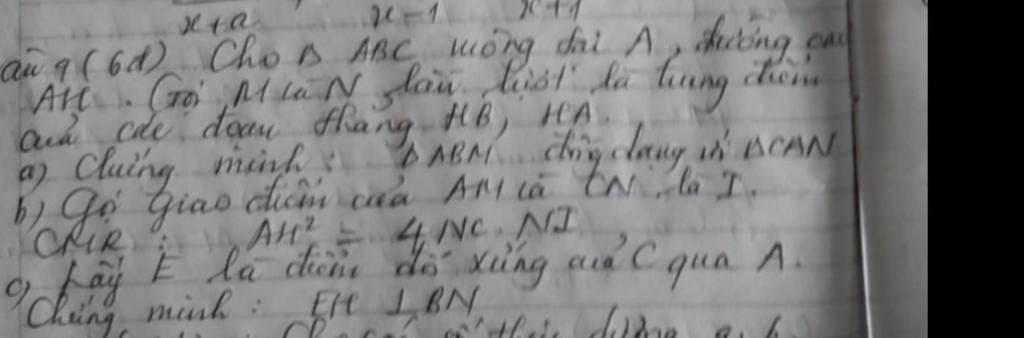 x+a x-1 x+1
9 (6đ) Cho Δ ABC vuông tại A, đường cao
AH. Gọi M và N lần lượt là trung điểm
của các đoạn thẳng HB, HA.
a) Chứng minh: Δ ABM đồng dạng với ΔCAN
b) Gọi giao điểm của AM và CN là I.
CMR: AH² = 4 NC. NI
c) Lấy E là điểm đối xứng của C qua A.
Chứng minh: EH ⊥ BN